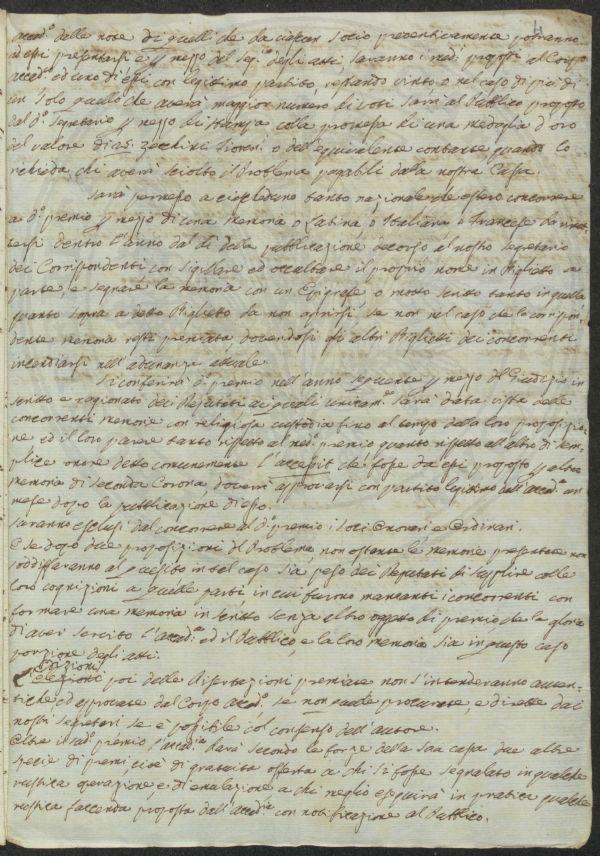 Accad.ª delle note di quelli che da ciascun Socio preventivamente potranno
ad essi presentarsi e per mezzo del Seg.º degli atti saranno i med.i proposti al Corpo
Accad.º ed uno di essi con legittimo partito, restando vinto o nel caso di più di
un solo quello che averà maggior numero di voti sarà al Pubblico proposto
dal d.º Segretario per mezzo di stampa colla promessa di una medaglia d'oro
del valore di 25 zecchini fiorentini o dell'equivalente contante, quando lo
richieda chi averà sciolto il Problema pagabili dalla nostra Cassa.
Sarà permesso a ciascheduno tanto nazionale che estero concorrere
a d.º premio per mezzo di una memoria o Latina o Italiana o Francese da
dentro l'anno dal dì della pubblicazione decorso al nostro segretario
dei Corrispondenti con sigillare ed occultare il proprio nome in Biglietto a
parte, e segnare la memoria con un Epigrafe o motto scritto tanto in quella
quanto sopra a detto Biglietto da non aprirsi se non nel caso che la corrispon-
dente memoria resti premiata dovendosi gli altri Biglietti dei concorrenti
incendiarsi nell'adunanza attuale.
Si conferirà d.º premio nell'anno seguente per mezzo del Giudizio in
scritto e ragionato dei Deputati ai quali unitam.e sarà data vista delle
concorrenti memorie con religiosa custodia fino al tempo della loro proposizio-
ne ed il loro parere tanto rispetto al med.º premio quanto rispetto all'altro di sem-
plice onore detto comunemente l'accessit che fosse da essi proposto per altra
memoria di seconda Corona doverà approvarsi con partito legittimo dell'Accad.ª un
mese dopo la pubblicazione di esso.
Saranno esclusi dal concorrere al d.º premio i Soci Onorari e Ordinari.
E se dopo due proposizioni del Problema non ostante le memorie presentate non
soddisfaranno al quesito in tal caso sia peso dei Deputati di supplire colle
loro cognizioni a quelle parti in cui furono mancanti i concorrenti con
formare una memoria in scritto senza altro oggetto di premio che la gloria
di aver servito l'Accad.ª ed il Pubblico e la loro memoria sia in questo caso
porzione degli atti.
edizioni
Le elezioni poi delle Dissertazioni premiate non s'intenderanno auten-
tiche ed approvate dal Corpo Accad.º se non quelle procurate, e dirette dai
nostri segretari se è possibile col consenso dell'autore.
Oltre il sud.º premio l'Accad.ia darà secondo le forze della sua cassa due altre
specie di premi cioè di gratuita offerta a chi si fosse segnalato in qualche
rustica operazione e di emulazione a chi meglio eseguirà in pratica qualche
rustica faccenda proposta dall'Accad.ia con notificazione al Pubblico.